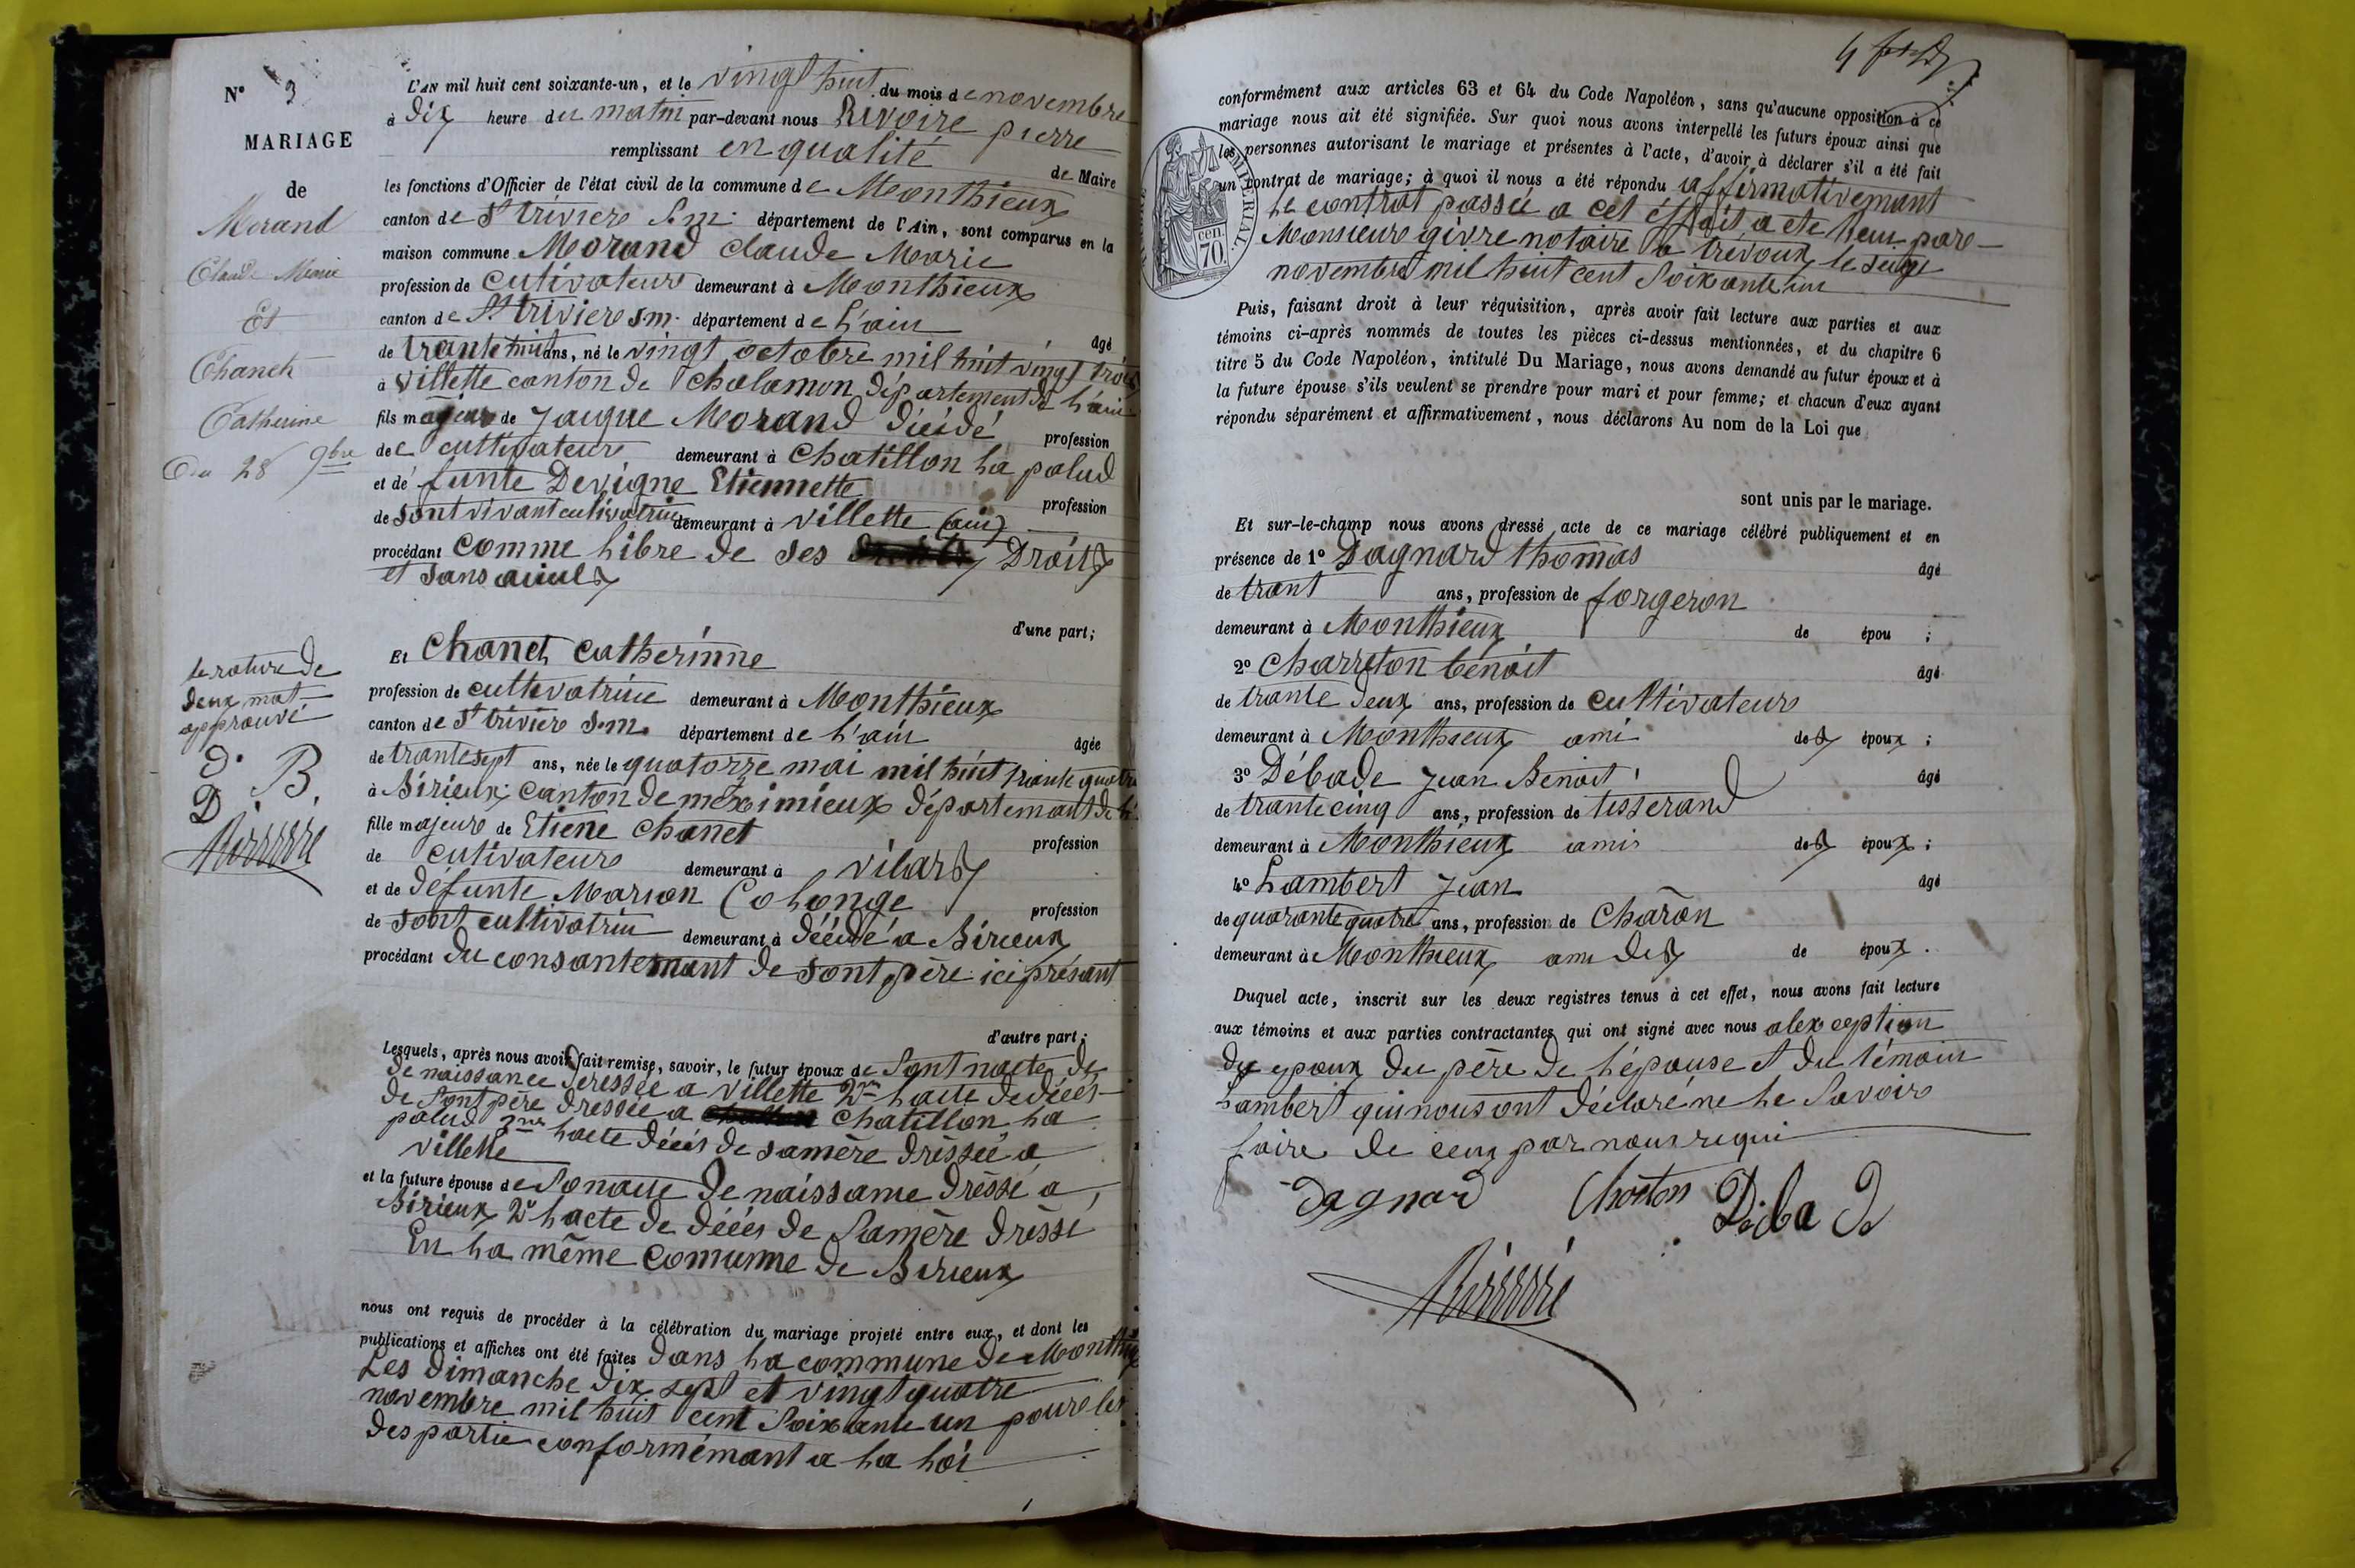 N° 3
MARIAGE
de
Morand
Claude Marie
Et
Chanet
Catherine
Du 28 9bre
L'AN mil huit cent soixante-un, et le vingt huit du mois de novembre
à dix heure du matin par-devant nous Rivoire pierre
remplissant en qualité de Maire
les fonctions d'Officier de l'état civil de la commune de Monthieux
canton de St trivier s.m. département de l'Ain, sont comparus en la
maison commune Morand claude Marie
profession de cutivateur demeurant à Monthieux
canton de St trivier s m. département de l'ain
âgé
de trante huit ans, né le vingt octobre mil huit vingt trois
à villette canton de chalamon département de l'ain
fils mageur de jaque Morand décédé
profession
de cultivateur demeurant à chatillon la palud
et de funte Devigne Etiennette
profession
de sont vivant cultivatrice demeurant à villette (ain)
procédant comme libre de ses Droits
et sans aieuls
d'une part;
le rature de
deux mot
approuvé
d. B.
D.
Et Chanet catherinne
profession de cultivatrice demeurant à Monthieux
canton de St trivier s.m. département de l'ain
âgée
de trante sept ans, née le quatorze mai mil huit
à Birieux; canton de meximieux département de l'
fille majeure de Etiene chanet
profession
de cutivateur demeurant à vilars
et de défunte Marion Colonge
profession
de sont cultivatrice demeurant à décédé a Birieux
procédant du consantemant de sont père ici présant
d'autre part;
Lesquels, après nous avoir fait remise, savoir, le futur époux de sont nacte de
de naissance deressée a villette 2me lacte de décés
de sont père dressée a chatillon la
palud 3me lacte décés de samère drèssée a
villette
et la future épouse de sonacte de naissance drèssé a
Birieux 2° lacte de décés de samère drèssé
En la même comunne de Birieux
nous ont requis de procéder à la célébration du mariage projeté entre eux, et dont les
publications et affiches ont été faites dans la commune de Monthieux
Les dimanche dix sept et vingt quatre
novembre mil huit cent soixante un poure les
des partie conformémant a la loi
conformément aux articles 63 et 64 du Code Napoléon, sans qu'aucune opposition à ce
mariage nous ait été signifiée. Sur quoi nous avons interpellé les futurs époux ainsi que
les personnes autorisant le mariage et présentes à l'acte, d'avoir à déclarer s'il a été fait
un contrat de mariage; à quoi il nous a été répondu affirmativemant
le contrat passée a cet éffait a ete reçu pare
Monsieure givre notaire a trévoux le seize
novembre mil huit cent soixante un
Puis, faisant droit à leur réquisition, après avoir fait lecture aux parties et aux
témoins ci-après nommés de toutes les pièces ci-dessus mentionnées, et du chapitre 6
titre 5 du Code Napoléon, intitulé Du Mariage, nous avons demandé au futur époux et à
la future épouse s'ils veulent se prendre pour mari et pour femme; et chacun d'eux ayant
répondu séparément et affirmativement, nous déclarons Au nom de la Loi que
sont unis par le mariage.
Et sur-le-champ nous avons dressé acte de ce mariage célébré publiquement et en
présence de 1° Dagnard thomas âgé
de trant ans, profession de forgeron
demeurant à Monthieux de épou ;
2° charreton benoit âgé
de trante deux ans, profession de cultivateur
demeurant à Monthieux ami des époux ;
3° Débade jean Benoit âgé
de trante cinq ans, profession de tisserand
demeurant à Monthieux amis des époux ;
4° Lambert jean âgé
de quarante quatre ans, profession de charon
demeurant à Monthieux ami des de époux .
Duquel acte, inscrit sur les deux registres tenus à cet effet, nous avons fait lecture
aux témoins et aux parties contractantes qui ont signé avec nous alexception
des epoux du père de l'épouse et du témoin
Lambert qui nous ont déclaré ne le savoir
faire de ceux par nous requi
Dagnard
Débad